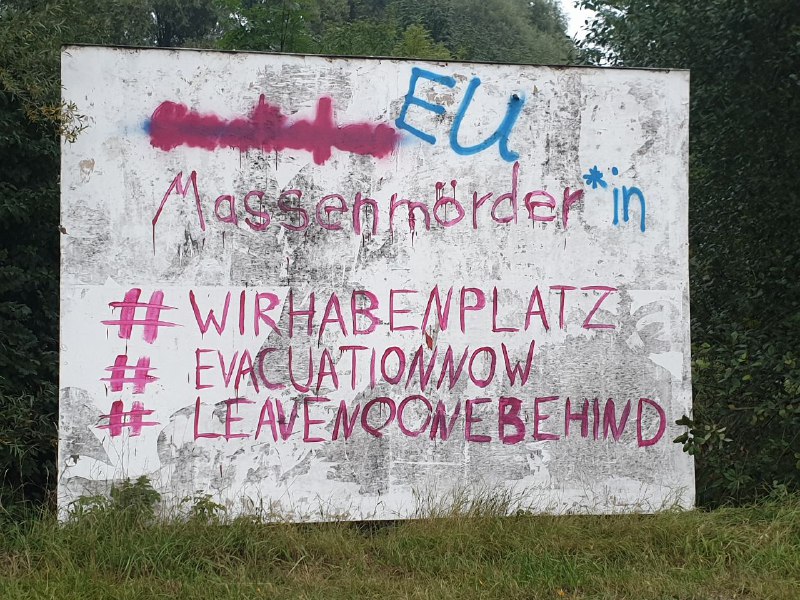 EU
Massenmörder*in
#WIRHABENPLATZ
#EVACUATIONNOW
#LEAVENOONEBEHIND